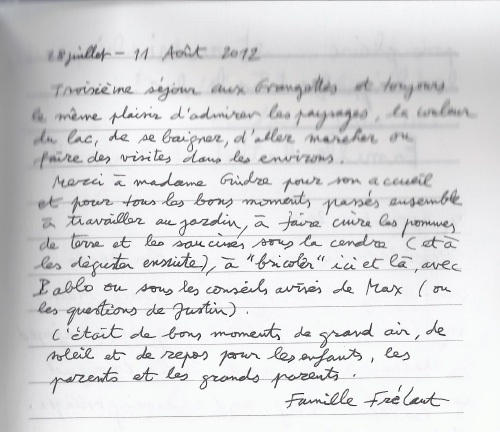 28 juillet - 11 Août 2012
Troisième séjour aux Grangottes et toujours
le même plaisir d'admirer les paysages, la couleur
du lac, de se baigner, d'aller marcher ou
faire des visites dans les environs.
Merci à madame Gindre pour son accueil
et pour tous les bons moments passés ensemble
à travailler au jardin, à faire cuire les pommes
de terre et les saucisses sous la cendre (et à
les déguster ensuite), à "bricoler" ici et là, avec
Pablo ou sous les conseils avisés de Max (ou
les questions de Justin).
C'était de bons moments de grand air, de
soleil et de repos pour les enfants, les
parents et les grands parents.
Famille Frélaut